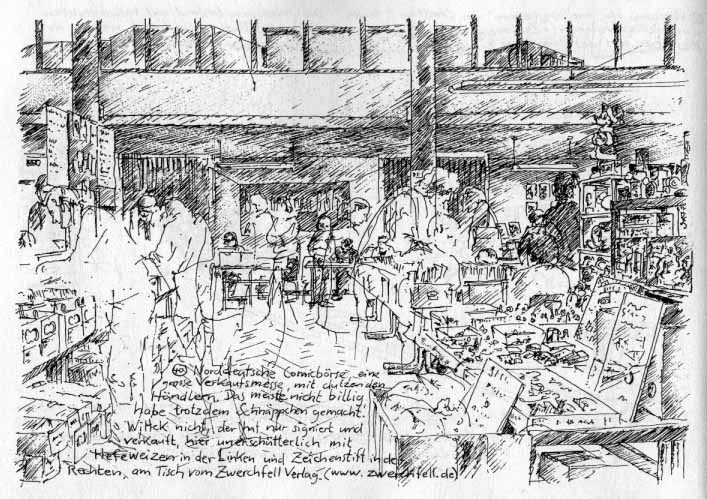 40 Norddeutsche Comicbörse, eine
grosse Verkaufsmesse, mit dutzenden
Händlern. Das meiste nicht billig
habe trotzdem Schnäppchen gemacht.
Wittek nicht, der hat nur signiert und
verkauft, hier unerschütterlich mit
Hefeweizen in der Linken und Zeichenstift in der
Rechten, am Tisch vom Zwerchfell Verlag. (www.zwerchfell.de)